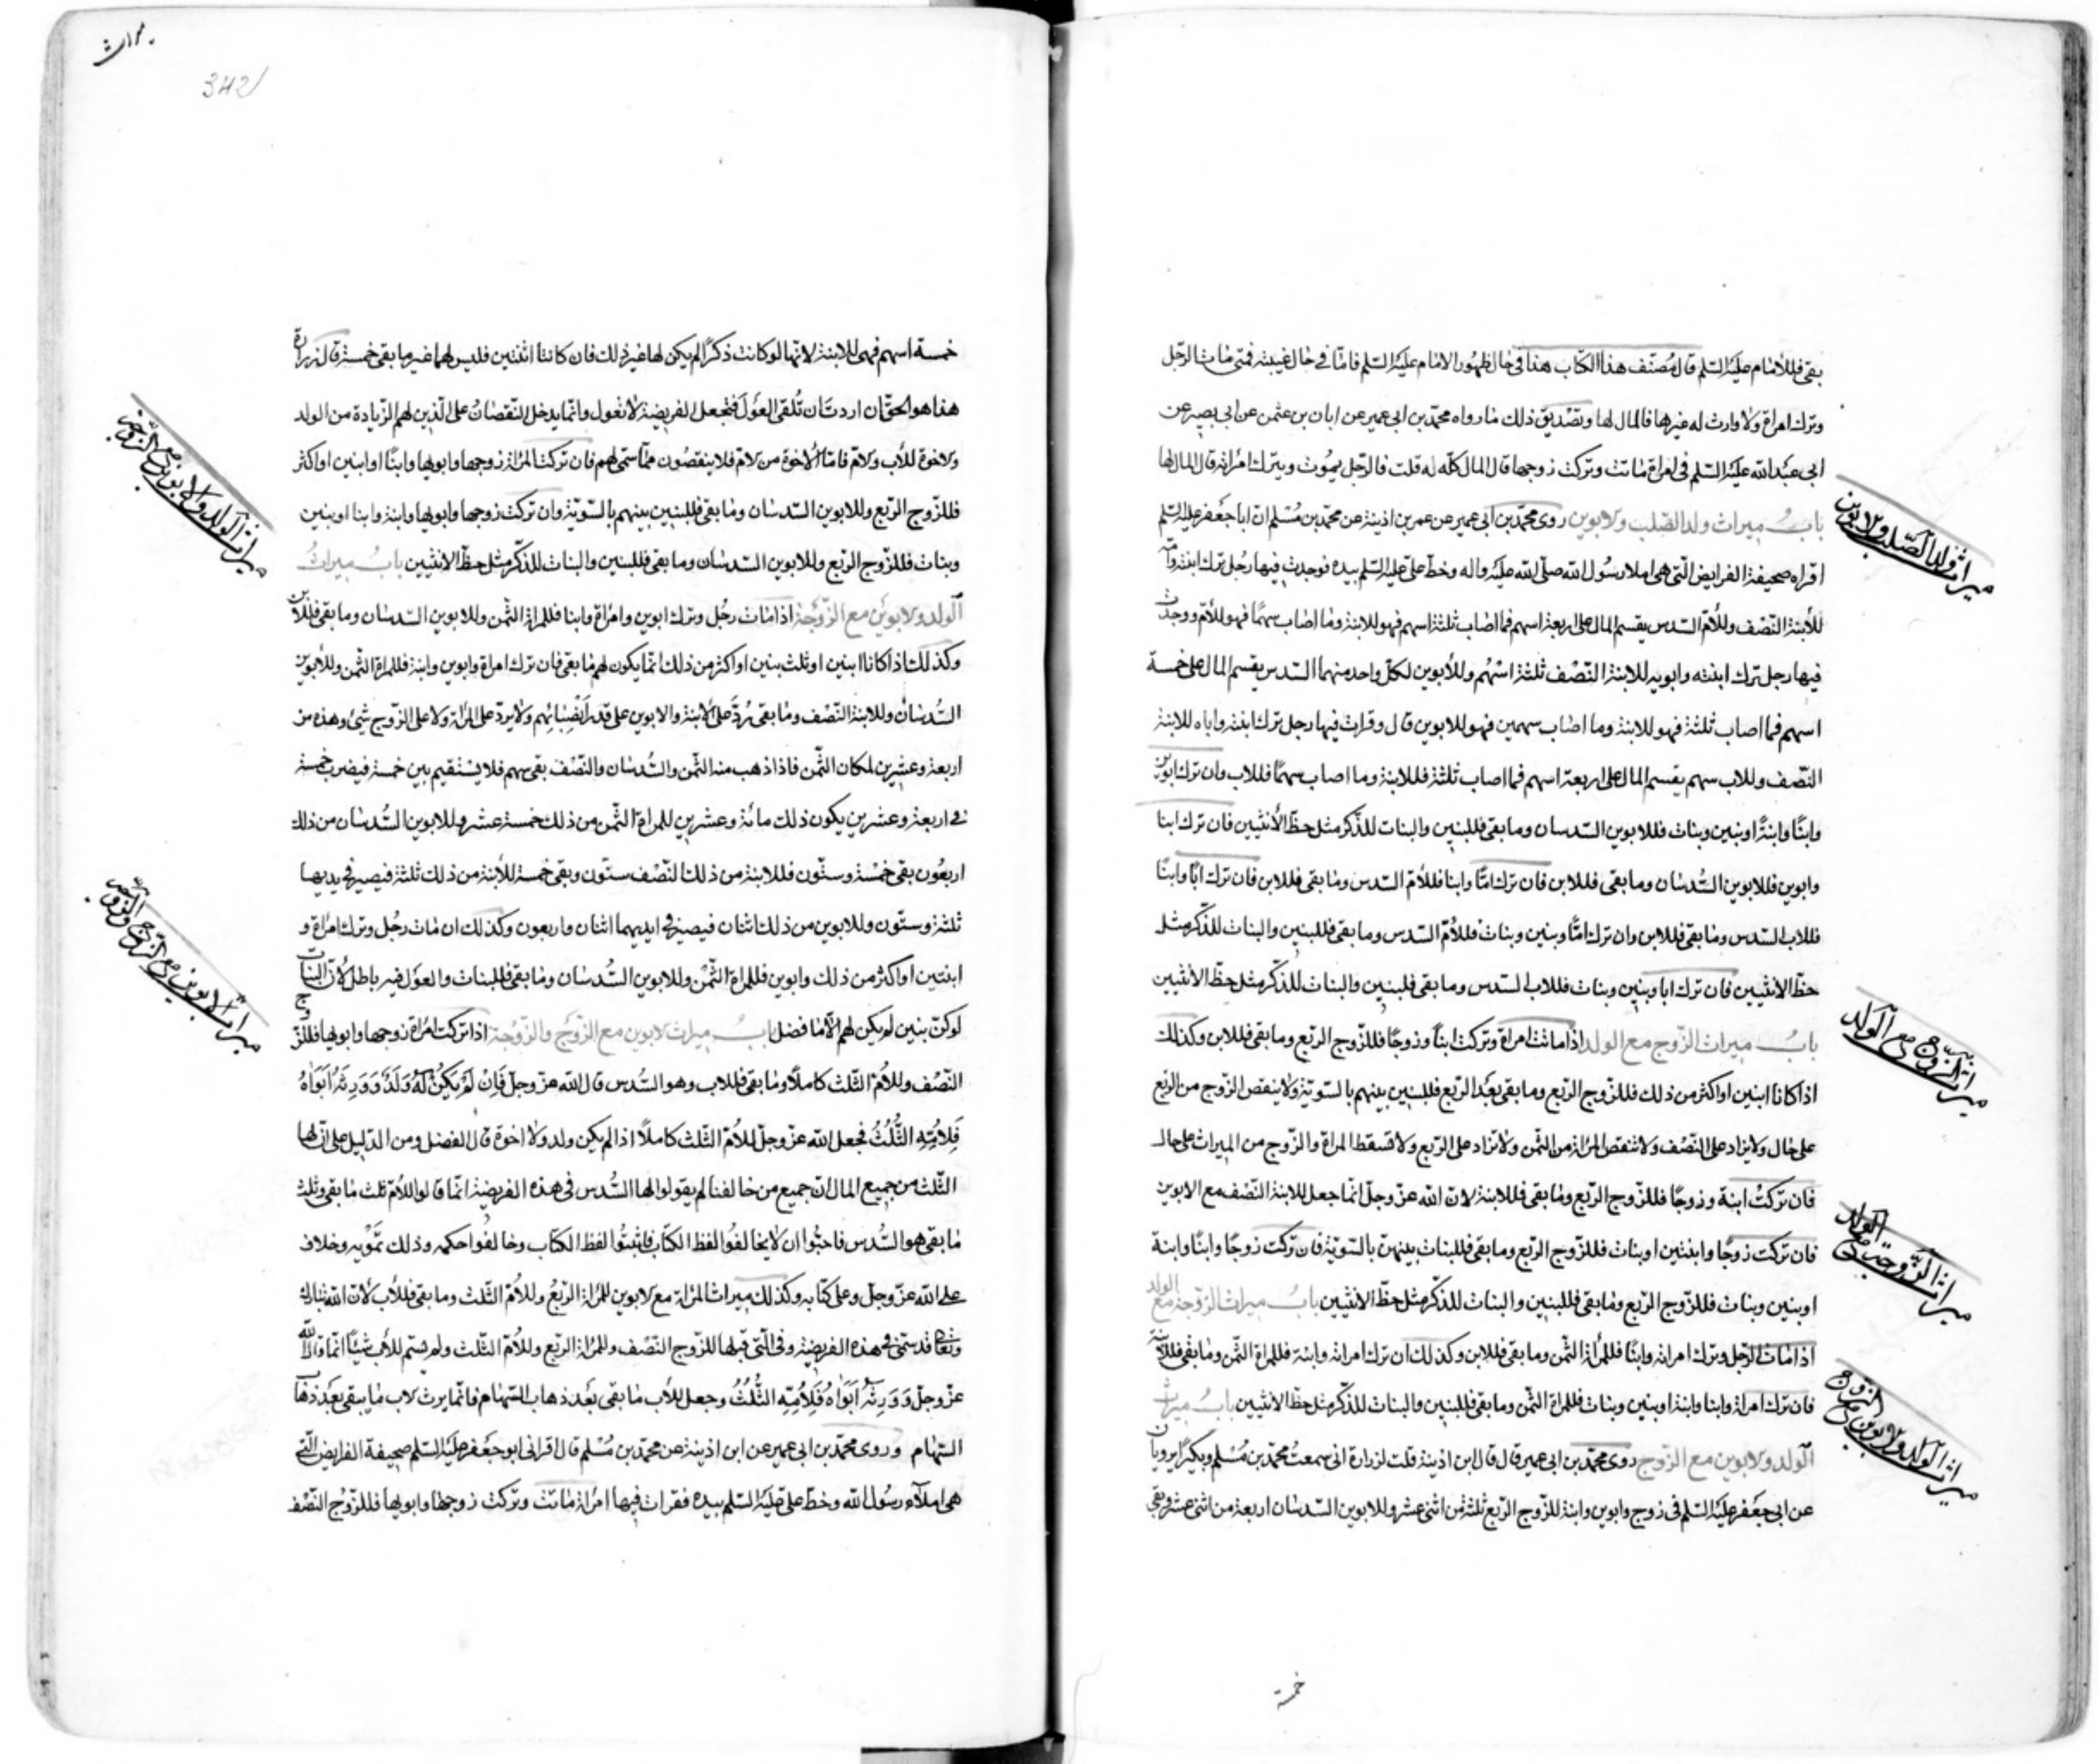 بقى فللامام عليه السلم قال مصنف هذا الكتاب هذا في حال ظهور الامام عليه السلم فاما في حال غيبته فمتى مات الرجل
وترك امراة ولا وارث له غيرها فالمال لها وتصديق ذلك ما رواه محمد بن ابى عمير عن ابان بن عثمن عن ابى بصير عن
ابى عبد الله عليه السلم فى امراة ماتت وتركت زوجها قال المال كله له قلت فالرجل يموت ويترك امراته قال المال لها
باب ميراث ولد الصلب والابوين روى محمد بن ابى عمير عن عمر بن اذينة عن محمد بن مسلم ان ابا جعفر عليه السلم
اقراه صحيفة الفرايض التى هى املا رسول الله صلى الله عليه واله وخط على عليه السلم بيده فوجدت فيها رجل ترك ابنته وامه
للابنة النصف وللام السدس يقسم المال على اربعة اسهم فما اصاب ثلثة اسهم فهو للابنة وما اصاب سهما فهو للام ووجدت
فيها رجل ترك ابنته وابويه للابنة النصف ثلثة اسهم وللابوين لكل واحد منهما السدس يقسم المال على خمسة
اسهم فما اصاب ثلثة فهو للابنة وما اصاب سهمين فهو للابوين قال وقرات فيها رجل ترك ابنته واباه للابنة
النصف وللاب سهم يقسم المال على اربعة اسهم فما اصاب ثلثة فللابنة وما اصاب سهما فللاب وان ترك ابوين
وابنا وابنة او بنين وبنات فللابوين السدسان وما بقى فللبنين والبنات للذكر مثل حظ الأنثيين فان ترك ابنا
وابوين فللابوين السدسان وما بقى فللابن فان ترك اما وابنا فللام السدس وما بقى فللابن فان ترك ابا وابنا
فللاب السدس وما بقى فللابن وان ترك اما وبنين وبنات فللام السدس وما بقى فللبنين والبنات للذكر مثل
حظ الانثيين فان ترك ابا وبنين وبنات فللاب السدس وما بقى فلبنين والبنات للذكر مثل حظ الانثيين
باب ميراث الزوج مع الولد اذا ماتت امراة وتركت ابنا وزوجا فللزوج الربع وما بقى فللابن وكذلك
اذا كانا ابنين او اكثر من ذلك فللزوج الربع وما بقى بعد الربع فللبنين بينهم بالسوية ولا ينقص الزوج من الربع
على حال ولا يزاد على النصف ولا تنقص المراة من الثمن ولا تزاد على الربع ولا تسقط المراة والزوج من الميراث على حال
فان تركت ابنة وزوجا فللزوج الربع وما بقى فللابنة لان الله عز وجل انما جعل للابنة النصف مع الابوين
فان تركت زوجا وابنتين او بنات فللزوج الربع وما بقى فللبنات بينهن بالسوية فان تركت زوجا وابنا وابنة
او بنين وبنات فللزوج الربع وما بقى فللبنين والبنات للذكر مثل حظ الانثيين باب ميراث الزوجة مع الولد
اذا مات الرجل وترك امراته وابنا فللمراة الثمن وما بقى فللابن وكذلك ان ترك امراته وابنة فللمراة الثمن وما بقى فللابنة
فان ترك امراة وابنا وابنة او بنين وبنات فللمراة الثمن وما بقى فللبنين والبنات للذكر مثل حظ الانثيين باب ميراث
الولد والابوين مع الزوج روى محمد بن ابى عمير قال قال ابن اذينة قلت لزرارة انى سمعت محمد بن مسلم وبكيرا يرويان
عن ابى جعفر عليه السلم فى زوج وابوين وابنة للزوج الربع ثلثة من اثنى عشر وللابوين السدسان اربعة من اثنى عشر وبقى
خمسة
ميراث ولد الصلب والابوين
ميراث الزوج مع الولد
ميراث الزوجة مع الولد
ميراث الولد والابوين مع الزوج
342
خمسة اسهم فهى للابنة لانها لو كانت ذكرا لم يكن لها غير ذلك فان كانتا اثنتين فليس لهما غير ما بقى خمسة قال زرارة
هذا هو الحق ان اردت ان تلقى العول فتجعل الفريضة لا تعول وانما يدخل النقصان على الذين لهم الزيادة من الولد
والاخوة للأب والام فاما الاخوة من الام فلا ينقصون مما سمى لهم فان تركت المراة زوجها وابويها وابنا او ابنين او اكثر
فللزوج الربع وللابوين السدسان وما بقى فللبنين بينهم بالسوية وان تركت زوجها وابويها وابنة وابنا او بنين
وبنات فللزوج الربع وللابوين السدسان وما بقى فللبنين والبنات للذكر مثل حظ الانثيين باب ميراث
الولد والابوين مع الزوجة اذا مات رجل وترك ابوين وامراة وابنا فللمراة الثمن وللابوين السدسان وما بقى فللابن
وكذلك اذا كانا ابنين او ثلث بنين او اكثر من ذلك انما يكون لهم ما بقى فان ترك امراة وابوين وابنة فللمراة الثمن وللأبوين
السدسان وللابنة النصف وما بقى رد على الابنة والابوين على قدر انصبائهم ولا يرد على المراة ولا على الزوج شئ وهذه من
اربعة وعشرين لمكان الثمن فاذا ذهب منه الثمن والسدسان والنصف بقى سهم فلا يستقيم بين خمسة فيضرب خمسة
فى اربعة وعشرين يكون ذلك مائة وعشرين للمراة الثمن من ذلك خمسة عشر وللابوين السدسان من ذلك
اربعون بقى خمسة وستون فللابنة من ذلك النصف ستون وبقى خمسة للأبنة من ذلك ثلثة فيصير فى يديها
ثلثة وستون وللابوين من ذلك اثنان فيصير فى ايديهما اثنان واربعون وكذلك ان مات رجل وترك امراة و
ابنتين او اكثر من ذلك وابوين فللمراة الثمن وللابوين السدسان وما بقى فللبنات والعول فيه باطل لان البنات
لو كن بنين لم يكن لهم الا ما فضل باب ميراث الابوين مع الزوج والزوجة اذا تركت امراة زوجها وابويها فللزوج
النصف وللام الثلث كاملا وما بقى فللاب وهو السدس قال الله عز وجل فَاِنْ لَمْ يَكُنْ لَهُ وَلَدٌ وَوَرِثَهُ اَبَوَاهُ
فَلِاُمِّهِ الثُّلُثُ فجعل الله عز وجل للام الثلث كاملا اذا لم يكن ولد ولا اخوة قال الفضل ومن الدليل على ان لها
الثلث من جميع المال ان جميع من خالفنا لم يقولوا لها السدس فى هذه الفريضة انما قالوا للام ثلث ما بقى وثلث
ما بقى هو السدس فاحبوا ان لا يخالفوا لفظ الكتاب فاثبتوا لفظ الكتاب وخالفوا حكمه وذلك تمويه وخلاف
على الله عز وجل وعلى كتابه وكذلك ميراث المراة مع الابوين للمراة الربع وللام الثلث وما بقى فللأب لان الله تبارك
وتعالى قد سمى فى هذه الفريضة وفى التى قبلها للزوج النصف وللمراة الربع وللام الثلث ولم يسم للأب شيئا انما قال الله
عز وجل وَوَرِثَهُ اَبَوَاهُ فَلِاُمِّهِ الثُّلُثُ وجعل للأب ما بقى بعد ذهاب السهام فانما يرث الاب ما يبقى بعد ذهاب
السهام وروى محمد بن ابى عمير عن ابن اذينة عن محمد بن مسلم قال اقرانى ابو جعفر عليه السلم صحيفة الفرايض التى
هى املاء رسول الله وخط على عليه السلم بيده فقرات فيها امراة ماتت وتركت زوجها وابويها فللزوج النصف
ميراث الولد والابوين مع الزوجة
ميراث الابوين مع الزوج والزوجة